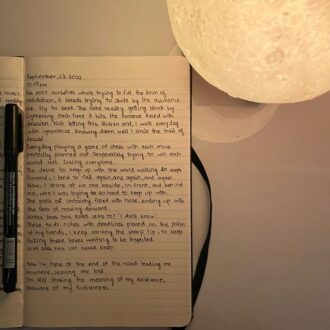 September, 23, 2022
10:19 pm
We pour ourselves whole trying to fill the brim of
realisation, it bleeds trying to abide by the assurance
we try to seek. The fate reality getting struck by
lightening each time it hits the turnace fixed with
illusion. Not letting this illusion end, I walk everyday
with ignorance. Knowing damn well I chose the trail of
denial.
Everyday playing a game of chess with each move
perfectly planned out desperately trying to win each
round, but losing everytime.
The desire to keep up with the world waiting to work
forward, I tend to fall again, and again, and again.
Now, I stare at no one beside, in front, and behind
me, who I was trying so hard to keep up with.
The path of certainty filled with haze, ending up with
the fear of moving forward.
Where does this road lead to? 'I don't know'.
These to do notes with deadlines placed on the palm
of my hands, I keep carving the sharp tip, to keep
ticking these boxes waiting to be finished.
Will does this list never end?
Now I'm here at the end of the road leading me
nowhere, leaving me lost.
I'm still chasing the meaning of my existence.
because of my foolishness.